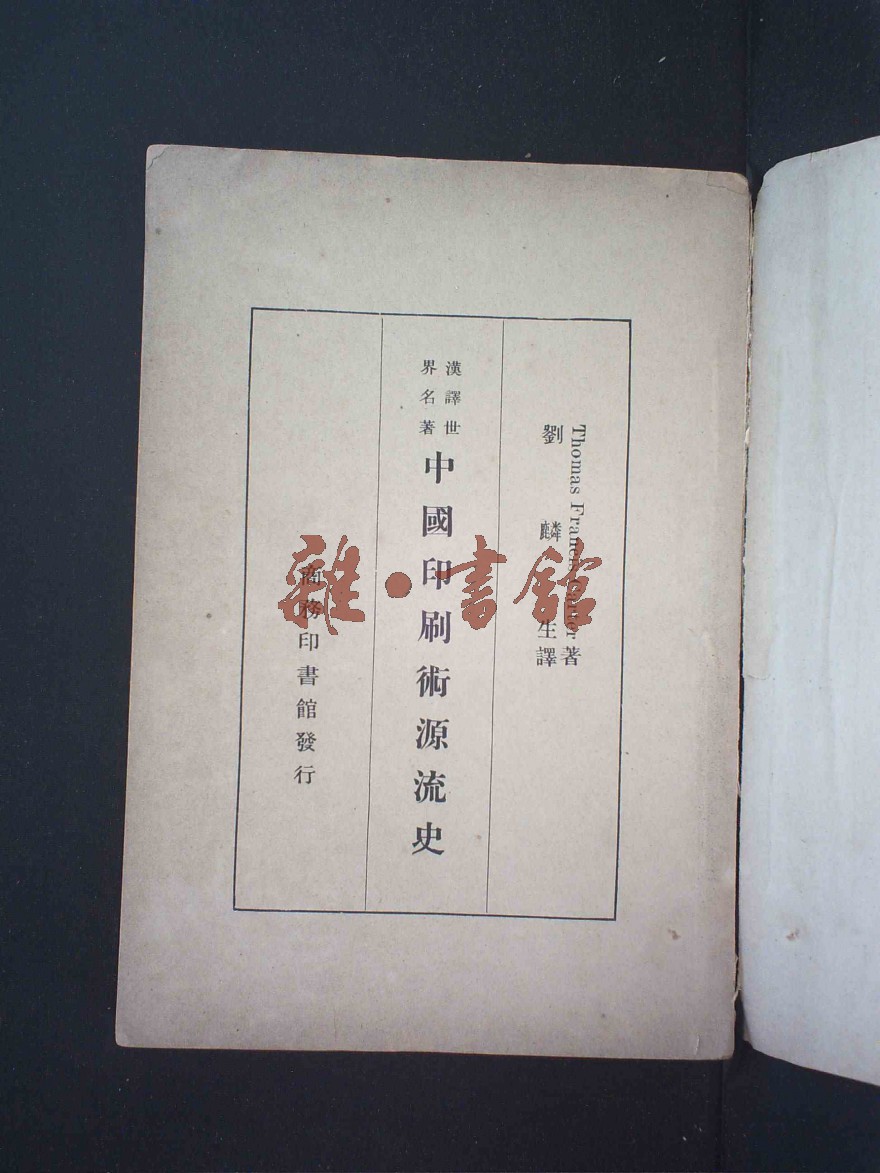 Thomas Francis Carter 著
劉麟生譯
漢譯世
界名著
中國印刷術源流史
商務印書館發行
雜·書館